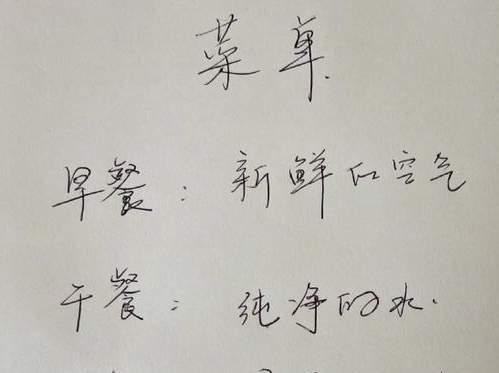 菜单
早餐：新鲜的空气
午餐：纯净的水.